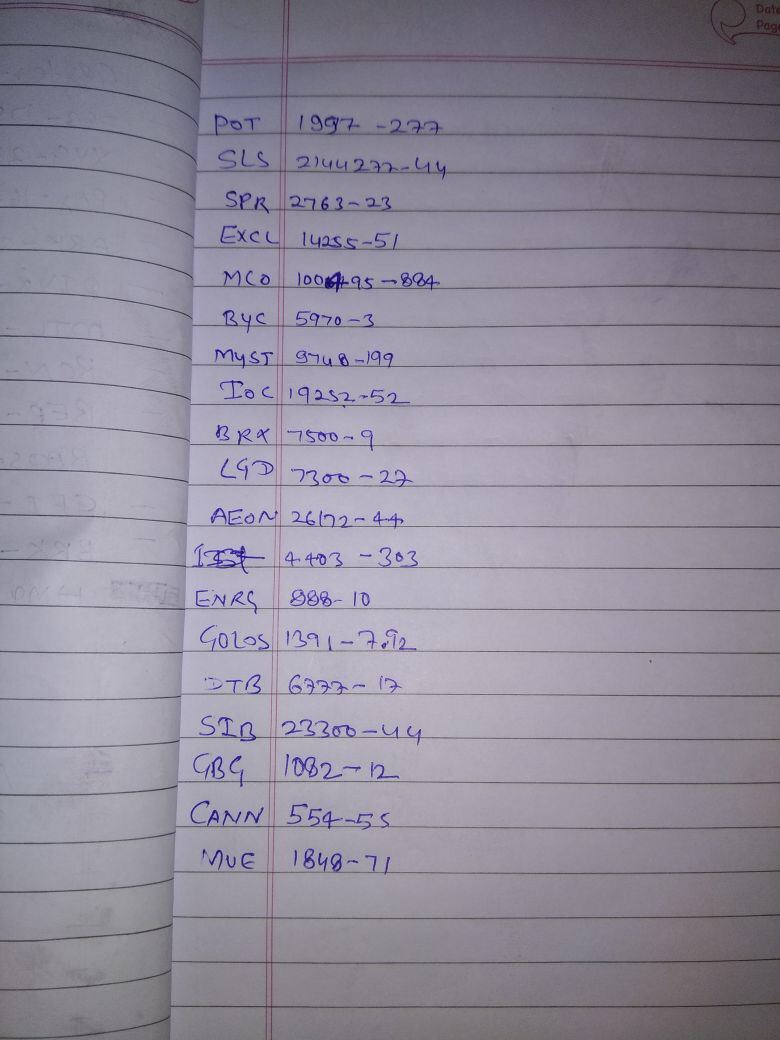 Date
Page
POT 1997 -277
SLS 2144277-44
SPR 2763-23
EXCL 14255-51
MCO 100495-884
BYC 5970-3
MYST 9748-199
IOC 19252-52
BRX 7500-9
LGD 7300-27
AEON 26172-44
4403 -303
ENRG 888-10
GOLOS 1391-7.92
DTB 6777-17
SIB 23300-44
GBG 1082-12
CANN 554-55
MUE 1848-71